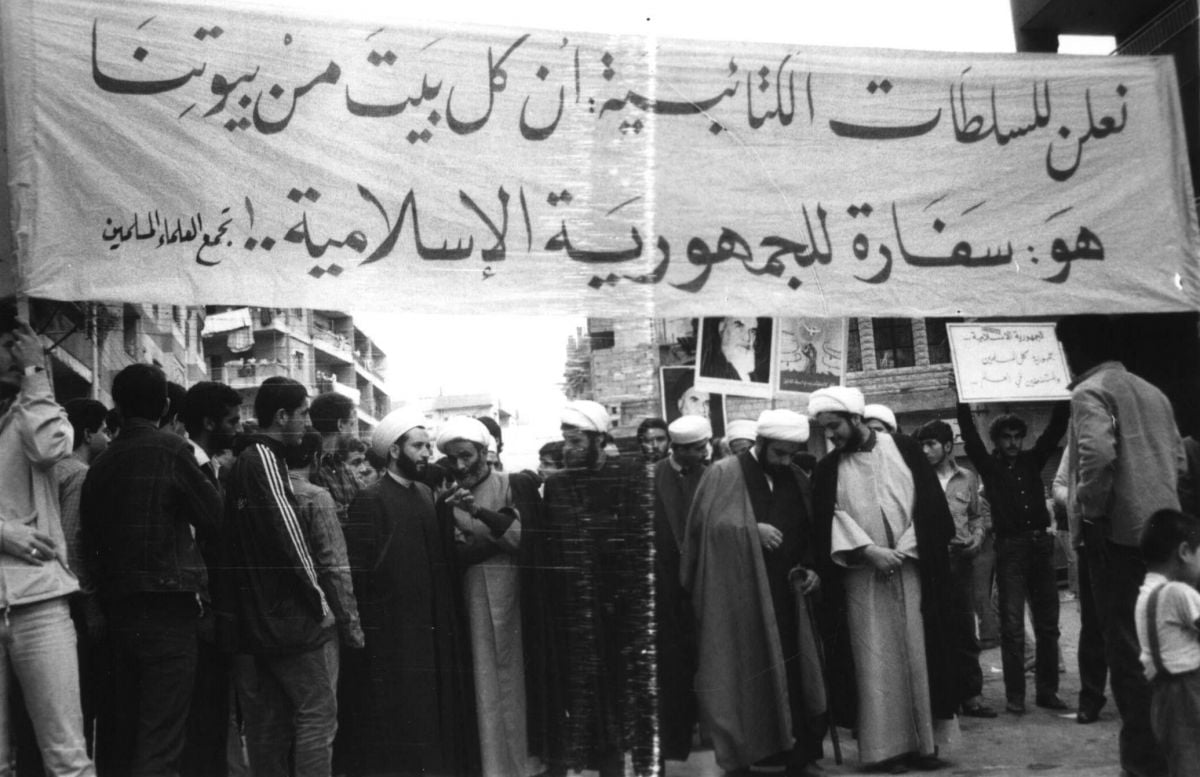 نعلن للسلطات الكتائبية: أن كل بيت من بيوتنا
هو: سفارة للجمهورية الإسلامية..! تجمع العلماء المسلمين
الجمهورية الاسلامية..
جمهورية كل المسلمين
والمستضعفين في العالم..